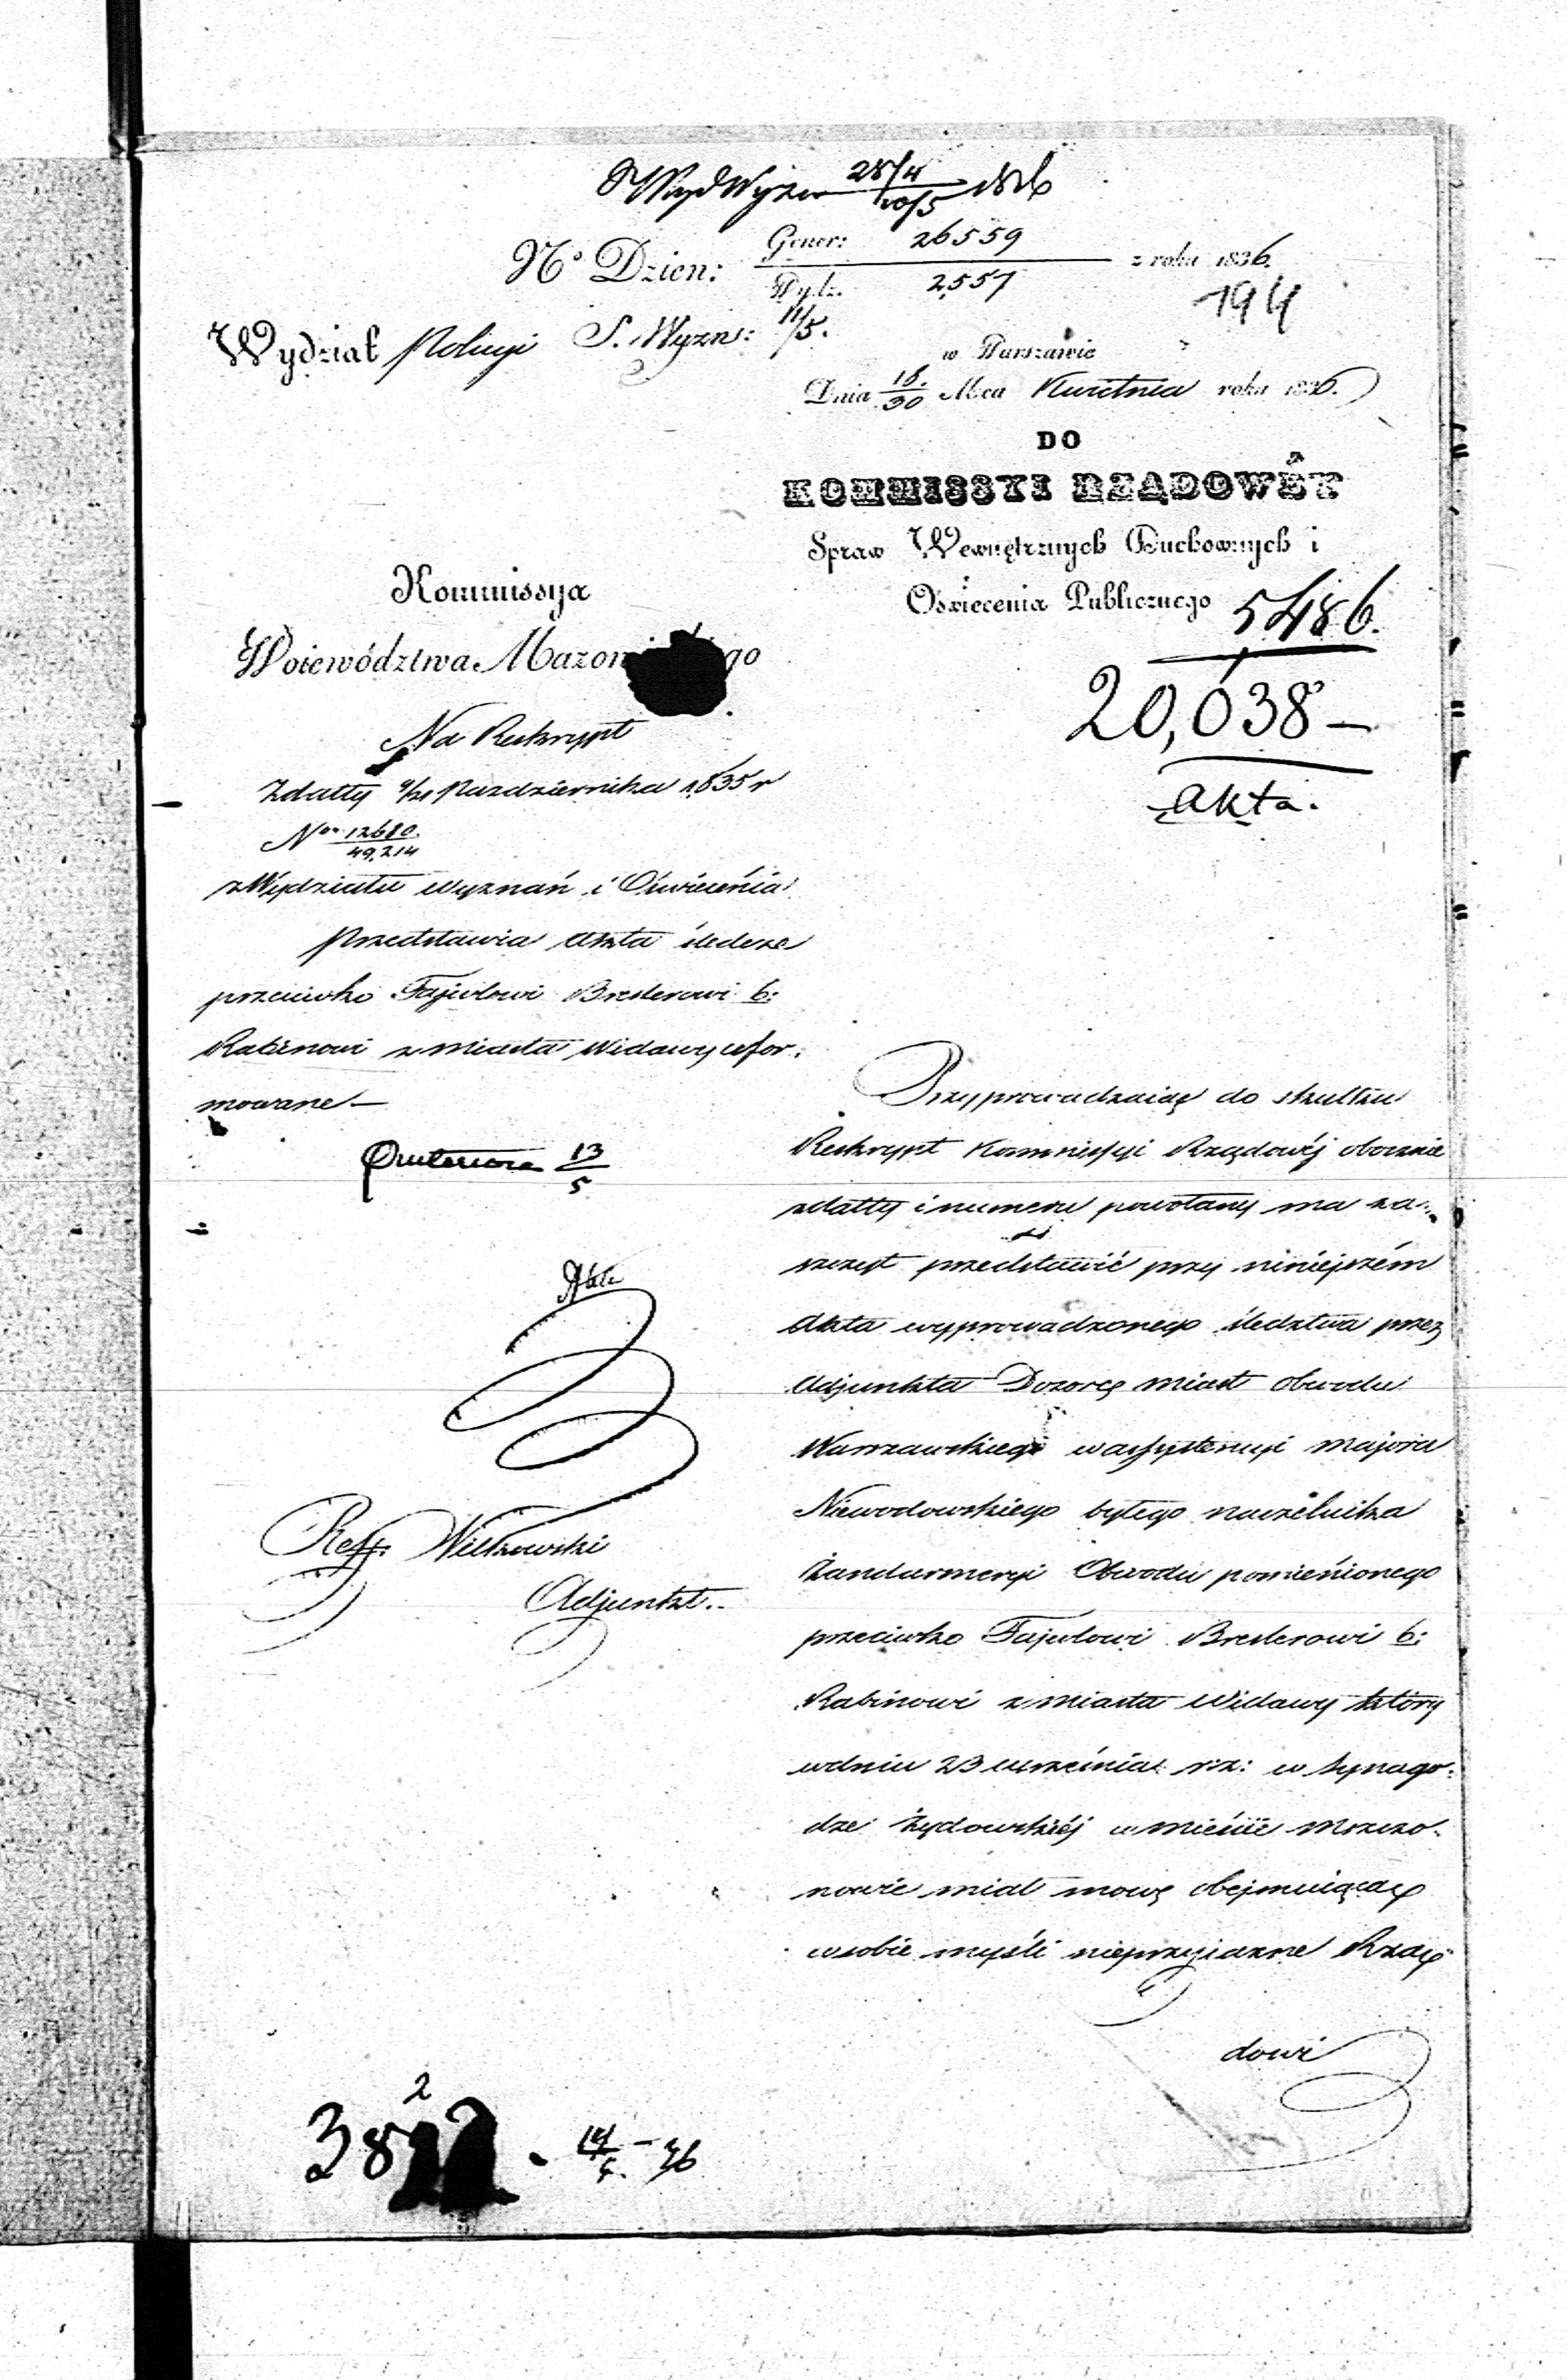 28/4 10/5
N° Dzien: Gener: 26559 z roku 1836.
Wydz. 2557
194
Wydział Policyi S. Wyzn: 11/5.
w Warszawie
Dnia 18/30 Mca Kwietnia roku 1836.
DO
KOMMISSYI RZĄDOWÉY
Spraw Wewnętrznych Duchownych i
Oświecenia Publicznego
5486.
20,038 —
Akta.
Kommissya
Woiewództwa Mazowieckiego
Na Reskrypt
Zdatty 9/21 Pazdziernika 1835 r
Nro 12680./49,214
z Wydziału wyznań i Oświecenia
Przedstawia Akta śledcze
przeciwko Fajwlowi Breslerowi b:
Rabinowi z miasta Widawy ufor:
mowane —
13/5
Akta
Reff: Witkowski
Adjunkt.
Przyprowadzaiąc do skutku
Reskrypt Kommissyi Rządowéj obocznie
zdatty i numeru powołany ma za:
szczyt przedstawić przy niniejszém
Akta wyprowadzonego śledztwa przez
Adjunkta Dozorcę miast obwodu
Warszawskiego w assystencyi majora
Niewodowskiego byłego naczelnika
Żandarmeryi Obwodu pomienionego
przeciwko Fajwlowi Breslerowi b:
Rabinowi z miasta Widawy który
w dniu 23 września r: z: w Synago:
dze Żydowskiéj w mieście Mszczo:
nowie miał mowę obejmuiącą
w sobie myśli nieprzyjazne Rzą:
dowi
2
38
14/5. — 36